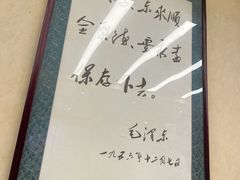 东来顺
全聚德要永远
保存下去。
毛泽东
一九五六年十二月七日